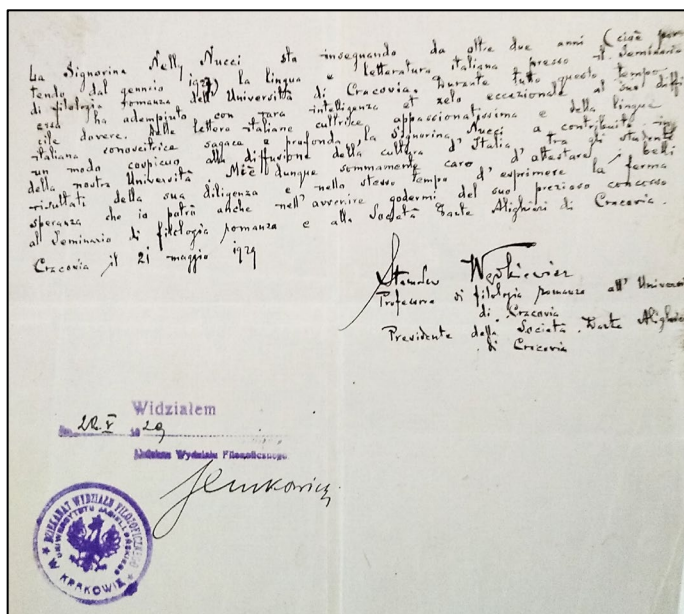 La Signorina Nelly Nucci sta insegnando da oltre due anni (cioè par-
tendo dal gennaio 1927) la lingua e letteratura italiana presso il Seminario
di filologia romanza dell'Università di Cracovia. Durante tutto questo tempo
essa ha adempiuto con rara intelligenza et zelo eccezionale al suo diffi-
cile dovere. Delle lettere italiane cultrice appassionatissima e della lingue
italiana conoscitrice sagace e profonda, la Signorina Nucci a contribuito in
un modo cospicuo alla diffusione della cultura d'Italia tra gli studenti
della nostra Università. M'è dunque sommamente caro d'attestare i belli
risultati della sua diligenza e nello stesso tempo d'esprimere la ferma
speranza che io potrò anche nell'avvenire godermi del suo prezioso concorso
al Seminario di filologia romanza e alla Società Dante Alighieri di Cracovia.
Cracovia il 21 maggio 1929
Stanisław Wędkiewicz
Professore di filologia romanza all'Universi
di Cracovia
Presidente della Società Dante Alighie
di Cracovia
Widziałem
22 V 1929
Dziekan Wydziału Filozoficznego
DZIEKANAT WYDZIAŁU FILOZOFICZNEGO
UNIWERSYTETU JAGIELLOŃSKIEGO
W KRAKOWIE